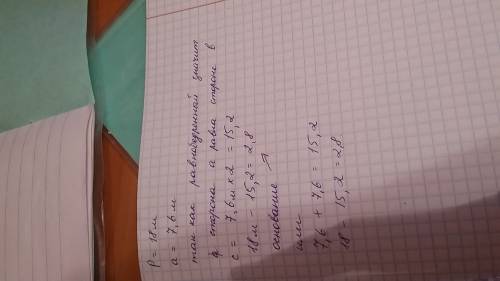 P = 18 м
a = 7,6 м
так как равнобедренный значит
сторона а равна стороне в
c = 7,6 м х 2 = 15,2
18 м - 15,2 = 2,8
основание ↗
или
7,6 + 7,6 = 15,2
18 - 15,2 = 2,8